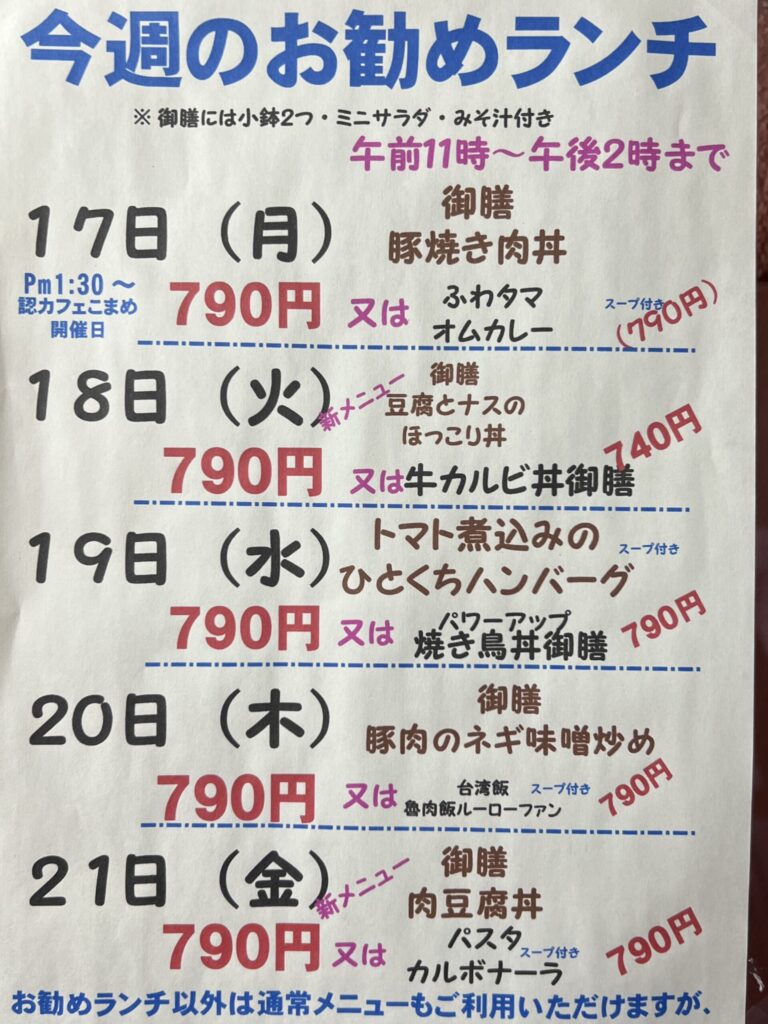 今週のお勧めランチ
※ 御膳には小鉢2つ・ミニサラダ・みそ汁付き
午前11時～午後2時まで
17日（月）
御膳
豚焼き肉丼
Pm1:30～
認カフェこまめ
開催日
790円 又は
ふわタマ
オムカレー
スープ付き
(790円)
18日（火）
新メニュー
御膳
豆腐とナスの
ほっこり丼
790円 又は牛カルビ丼御膳
740円
19日（水）
トマト煮込みの
ひとくちハンバーグ
スープ付き
790円 又は
パワーアップ
焼き鳥丼御膳
790円
20日（木）
御膳
豚肉のネギ味噌炒め
790円 又は
台湾飯
魯肉飯ルーローファン
スープ付き
790円
21日（金）
新メニュー
御膳
肉豆腐丼
790円 又は
パスタ
カルボナーラ
スープ付き
790円
お勧めランチ以外は通常メニューもご利用いただけますが、